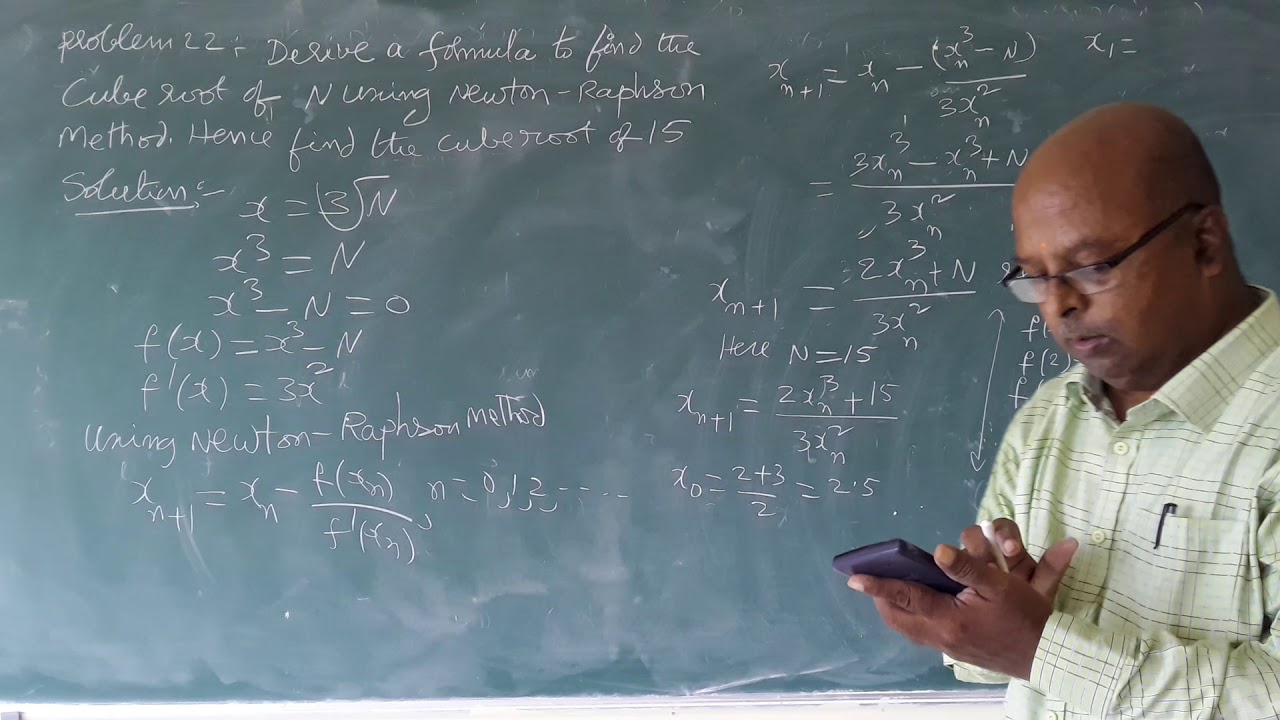 problem 22:- Derive a formula to find the
Cube root of N using Newton-Raphson
Method. Hence find the cube root of 15
Solution:-
x = ∛N
x³ = N
x³ - N = 0
f(x) = x³ - N
f'(x) = 3x²
Using Newton-Raphson method
xₙ₊₁ = xₙ - f(xₙ)/f'(xₙ), n = 0, 1, 2, -----
xₙ₊₁ = xₙ - (xₙ³ - N)/3xₙ²
= (3xₙ³ - xₙ³ + N)/3xₙ²
xₙ₊₁ = (2xₙ³ + N)/3xₙ²
Here N = 15
xₙ₊₁ = (2xₙ³ + 15)/3xₙ²
x₀ = (2+3)/2 = 2.5
x₁ =
f(
f(2)